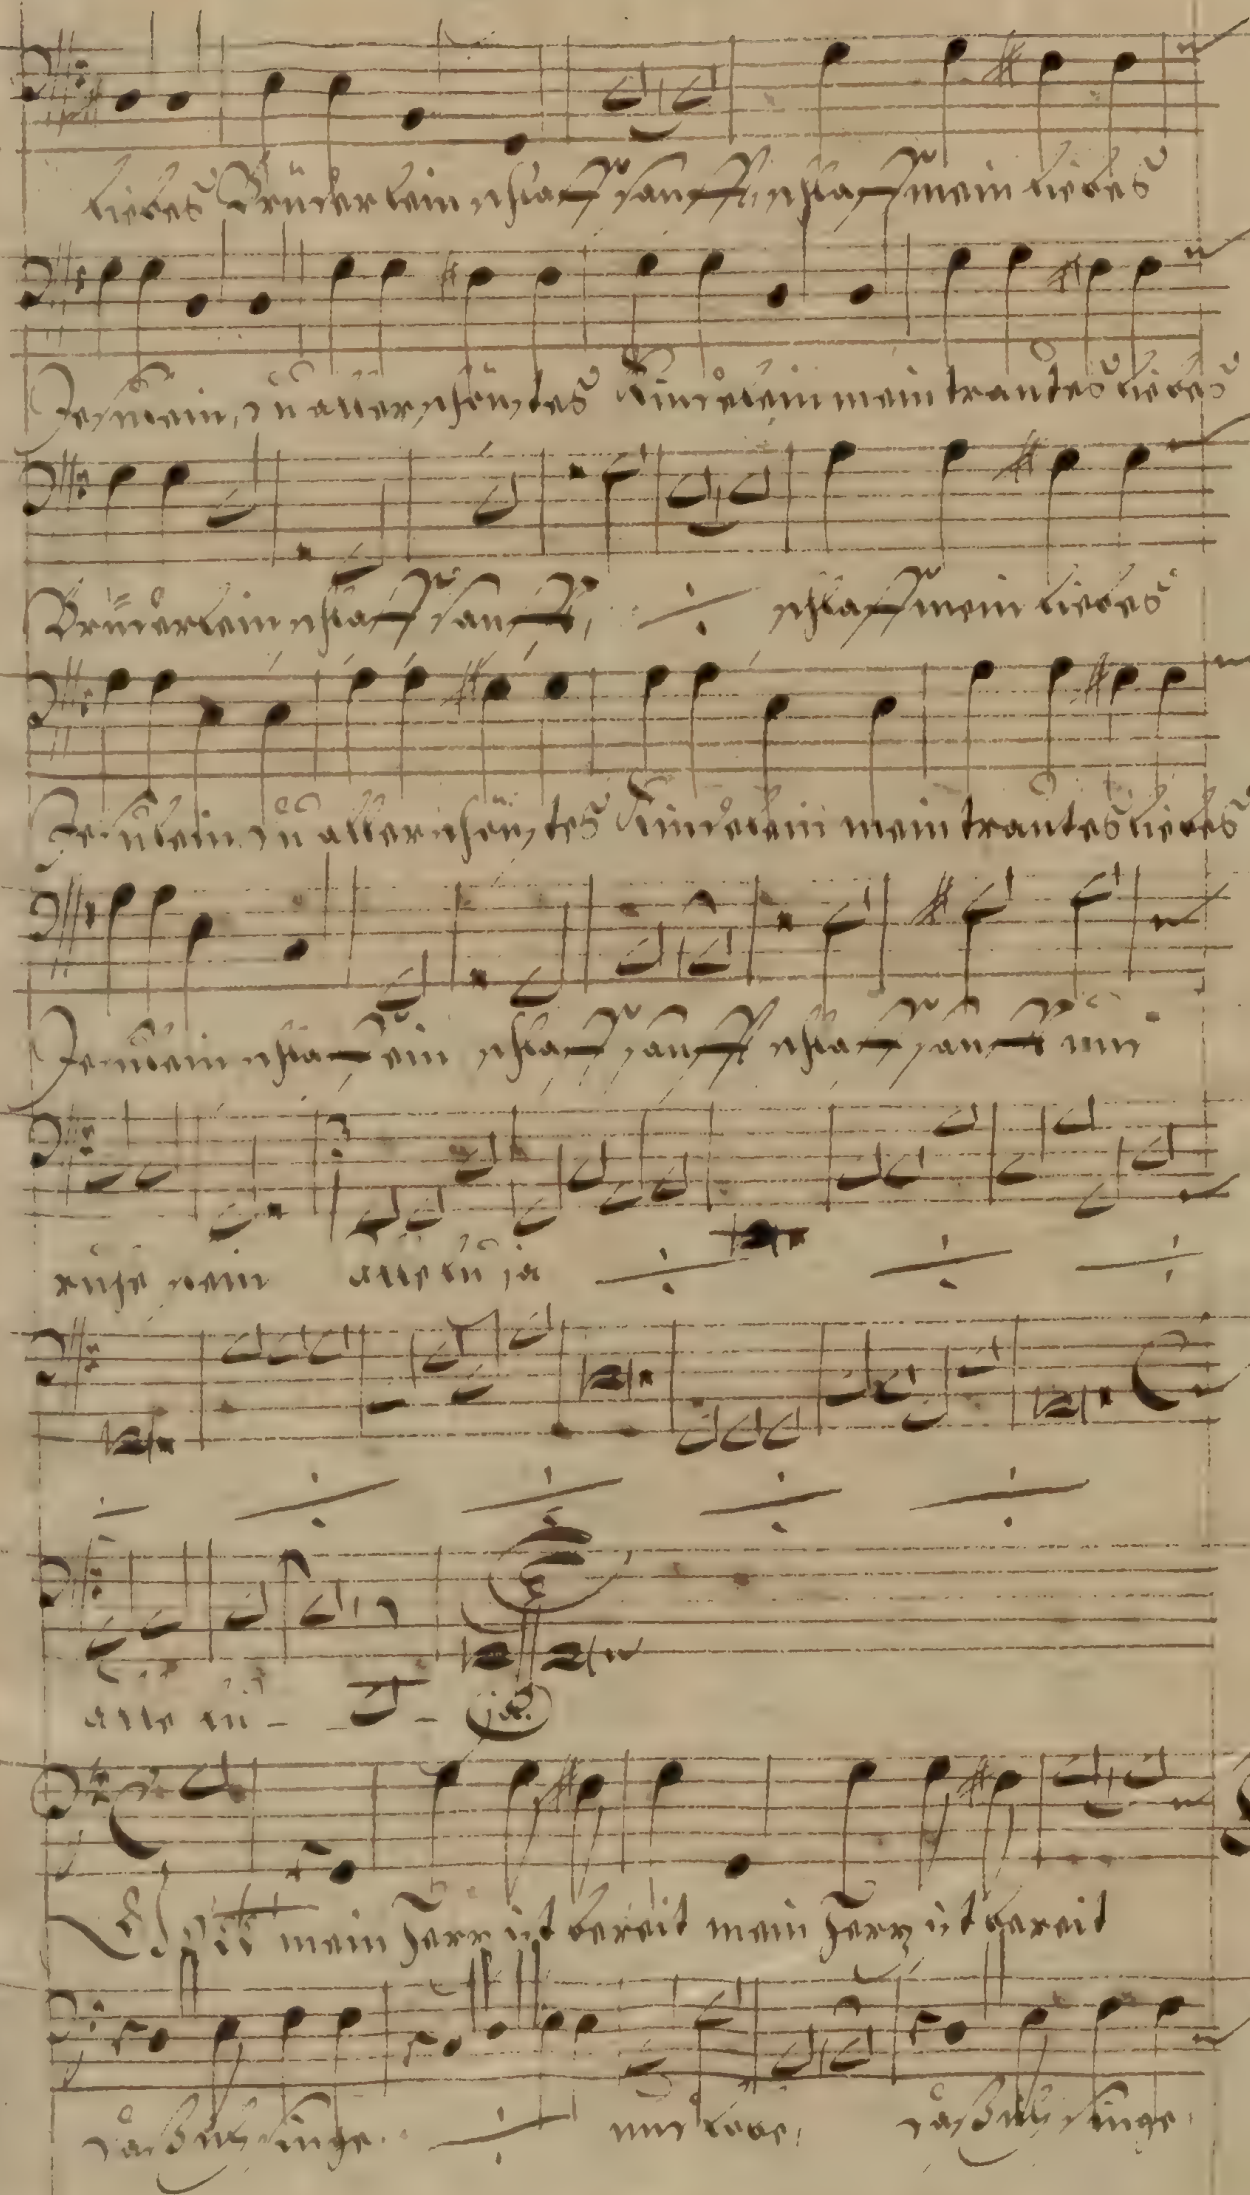 liebes Brüderlein schlaff sanfft, schlaff mein liebes
Jesulein, du allerschönstes Kindelein mein trautes liebes
Brüderlein schlaff sanfft, ÷ schlaff mein liebes
Jesulein du allerschönstes Kindelein mein trautes liebes
Jesulein schlaff ein schlaff sanfft schlaff sanfft und
ruhe fein alleluja ÷ ÷ ÷
÷ ÷ ÷ ÷ ÷
alle lu - - - ja.
Gott mein Hertz ist bereit mein Hertz ist bereit
daß ich singe. ÷ und lobe, daß ich singe